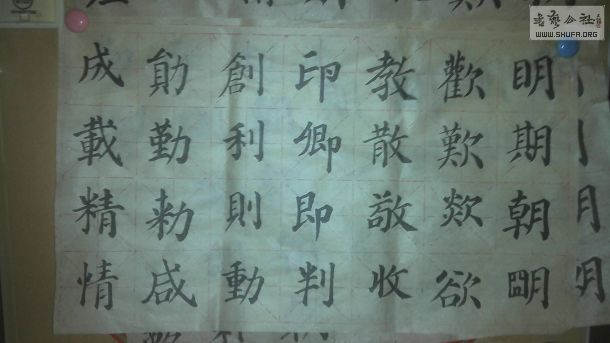 书艺公社
WWW.SHUFA.ORG
月
明期朝朙
歡歎欻欲
教散敬收
印卿即判
創利則動
勛勤勅咸
成載精情